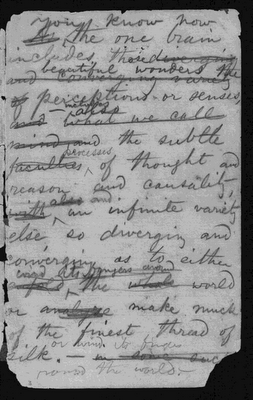 You know how
the one brain
includes these diverging
and beautiful wonders the
and converging sounds
of perceptions or senses
and what we call
mind, and the subtle
processes
faculties of thought and
reason and causality,
with also and an infinite variety
else so divergin and
converging as to either
the whole world
or analyze make much
of the finest thread of
silk. —
or wind its finger
round the world —